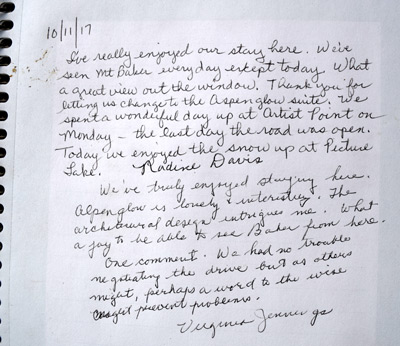 10/11/17
I've really enjoyed our stay here. We've
seen Mt Baker everyday except today. What
a great view out the window. Thank you for
letting us change to the Aspenglow suite. We
spent a wonderful day up at Artist Point on
Monday - the last day the road was open.
Today we enjoyed the snow up at Picture
Lake. Nadine Davis
We've truly enjoyed staying here.
Alpenglow is lovely & interesting. The
architectural design intrigues me. What
a joy to be able to see Baker from here.
One comment. We had no trouble
negotiating the drive but as others
might, perhaps a word to the wise
might prevent problems.
Virginia Jennings